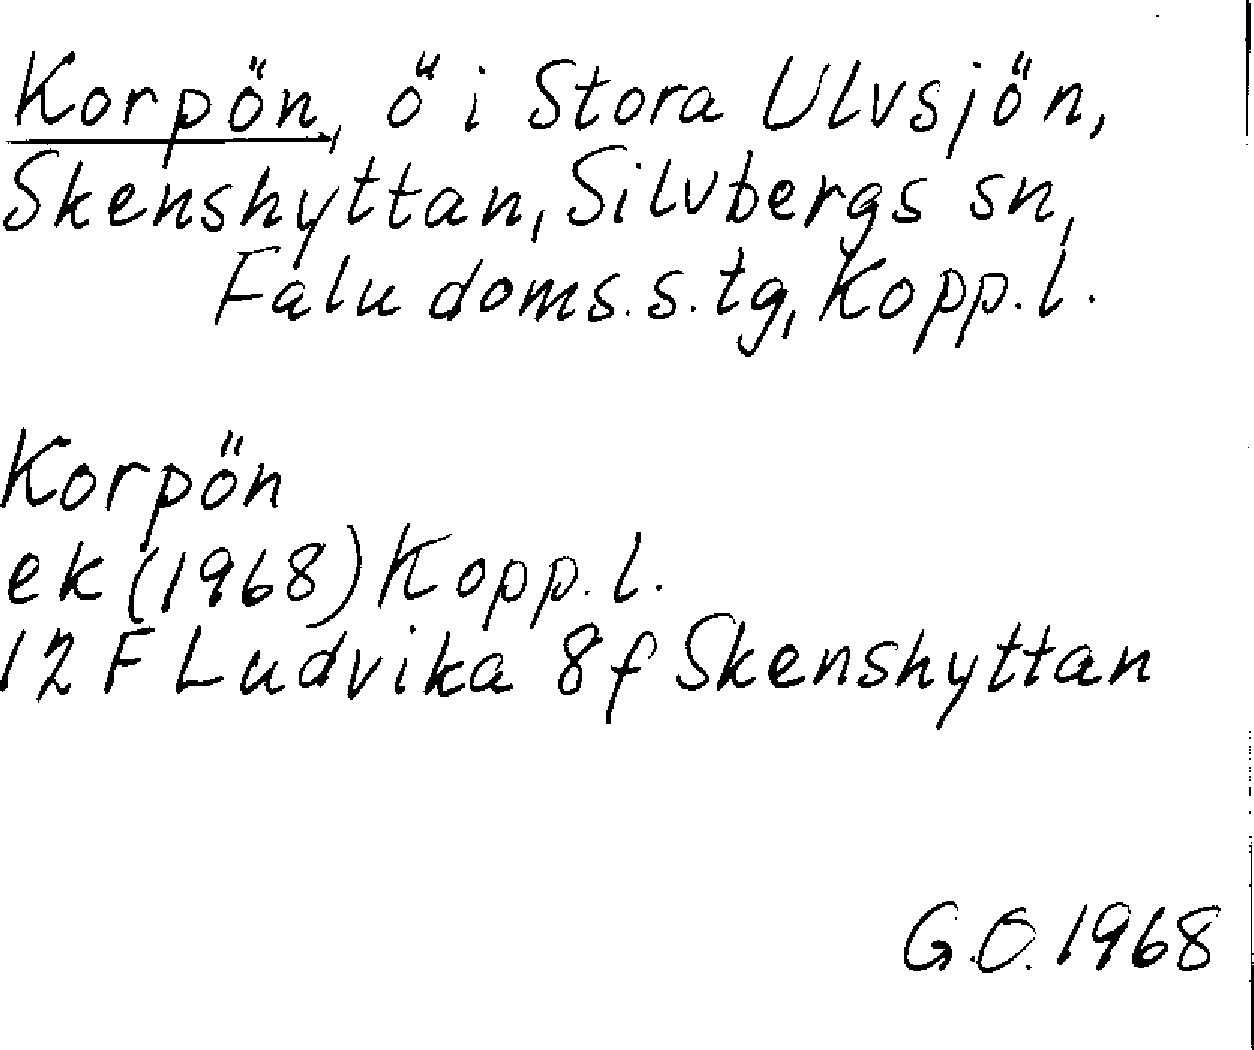 Korpön, ö i Stora Ulvsjön,
Skenshyttan, Silvbergs sn,
Falu doms.s.tg, Kopp.l.
Korpön
ek (1968) Kopp.l.
12 F Ludvika 8f Skenshyttan
G.O. 1968